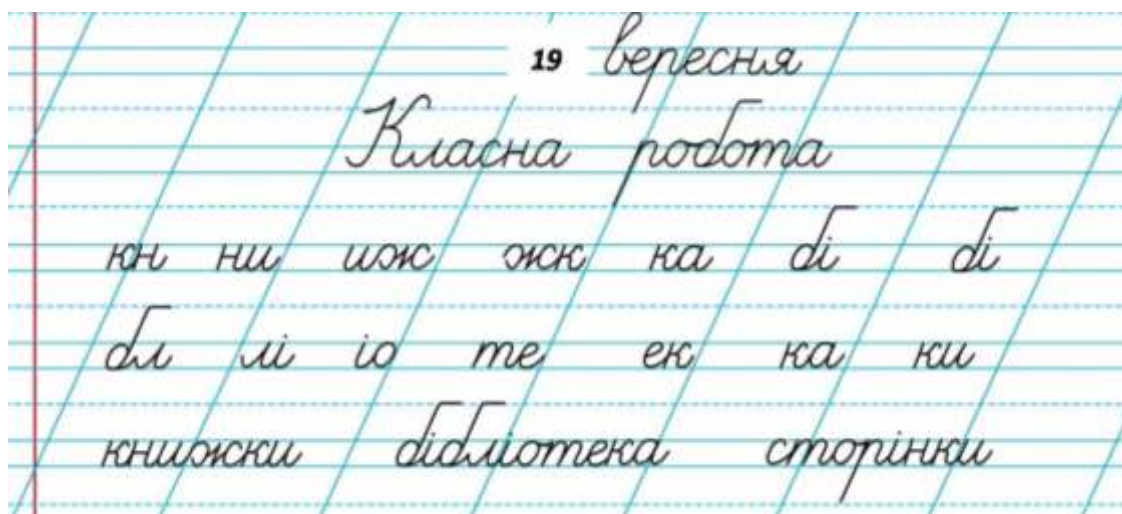 19 вересня
Класна робота
кн ни иж жк ка бі бі
бл лі іо те ек ка ки
книжки бібліотека сторінки